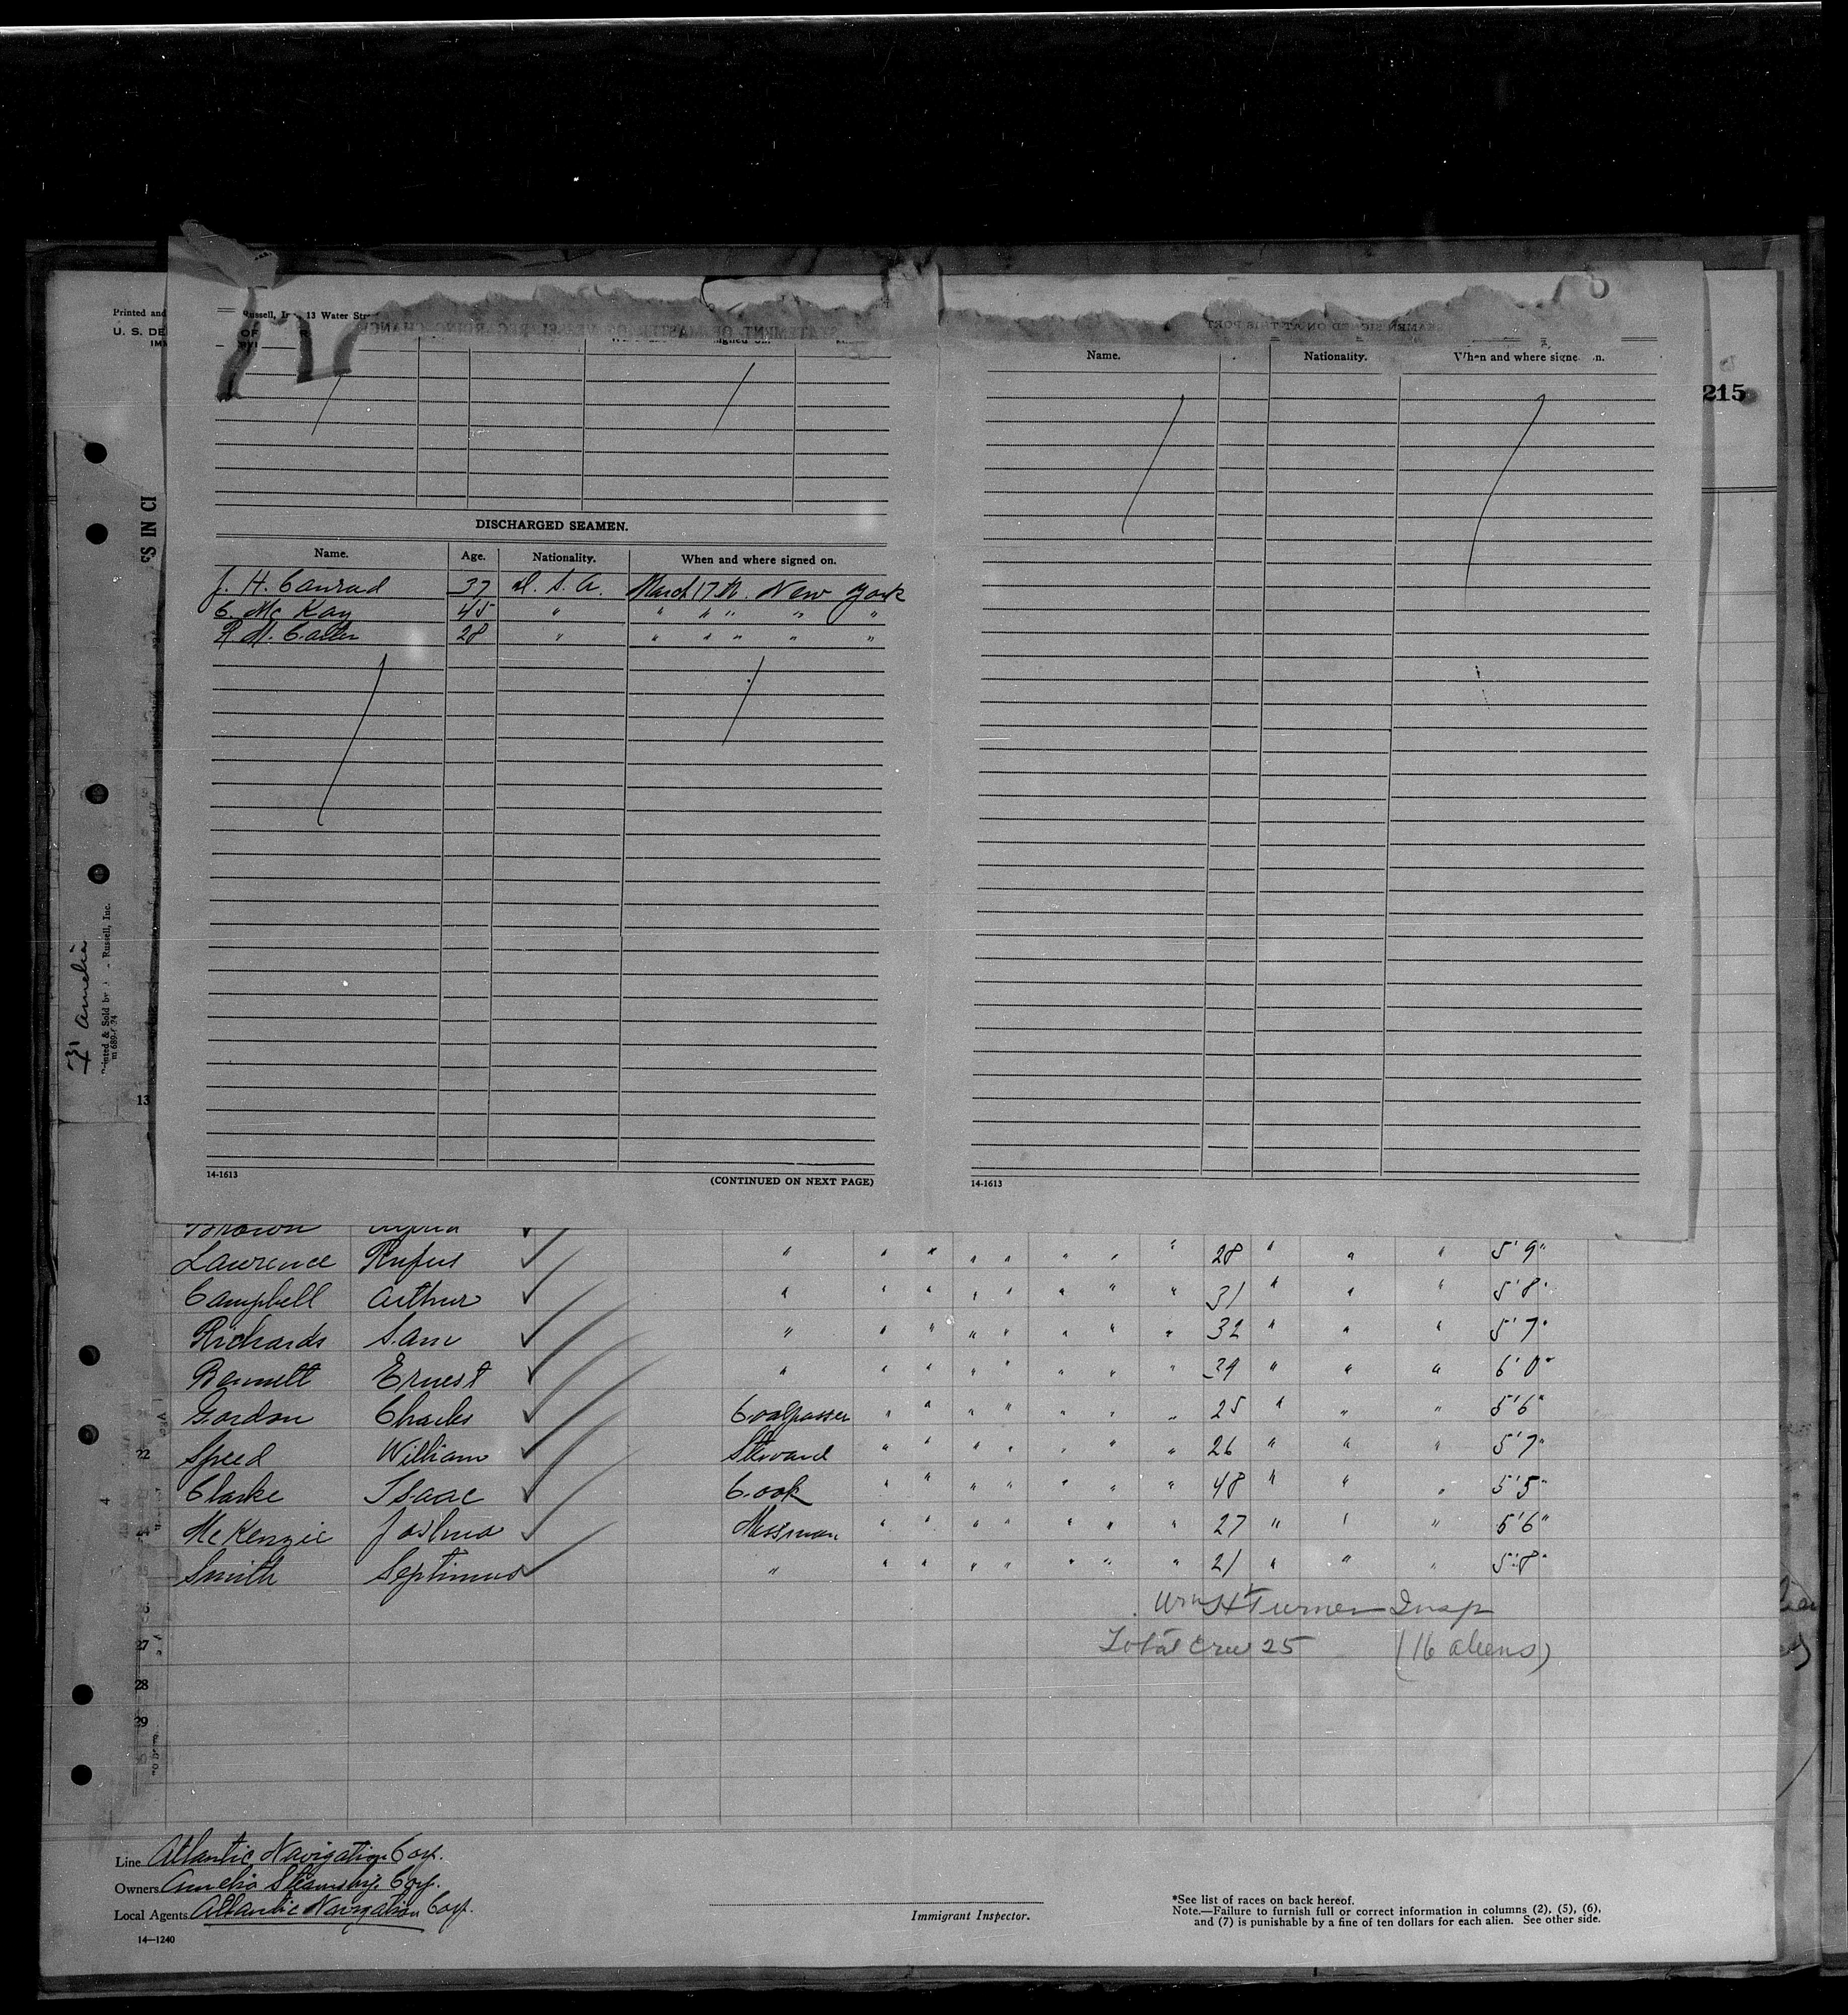 Printed and
Russell, Inc., 13 Water Str
U. S. DE
IMM
OF
215
Name.
Nationality.
When and where signe n.
DISCHARGED SEAMEN.
Name. Age. Nationality. When and where signed on.
J. H. Conrad 37 U. S. A. March 17th New York
C. Mc Kay 45 " " " " " "
R. H. Carter 28 " " " " " "
14-1613 (CONTINUED ON NEXT PAGE)
14-1613
ES IN CI
Amelia
Printed & Sold by Russell, Inc.
13
Brown
Lawrence Rufus ✓ " " " " " " " " 28 " " " 5' 9"
Campbell Arthur ✓ " " " " " " " " 31 " " " 5' 8"
Richards Sam ✓ " " " " " " " " 32 " " " 5' 7"
Bennett Ernest ✓ " " " " " " " " 39 " " " 6' 0"
Gordon Charles ✓ Coalpasser " " " " " " " 25 " " " 5' 6"
22 Speed William ✓ Steward " " " " " " " 26 " " " 5' 7"
Clarke Isaac ✓ Cook " " " " " " " 48 " " " 5' 5"
24 McKenzie Joshua ✓ Messman " " " " " " " 27 " " " 5' 6"
Smith Septimus ✓ " " " " " " " " 21 " " " 5' 8"
26 Wm H Turner Insp
27 Total Crew 25 (16 aliens)
28
29
4
Line Atlantic Navigation Corp.
Owners Amelia Steamship Corp.
Local Agents Atlantic Navigation Corp.
14—1240
Immigrant Inspector.
*See list of races on back hereof.
Note.—Failure to furnish full or correct information in columns (2), (5), (6),
and (7) is punishable by a fine of ten dollars for each alien. See other side.